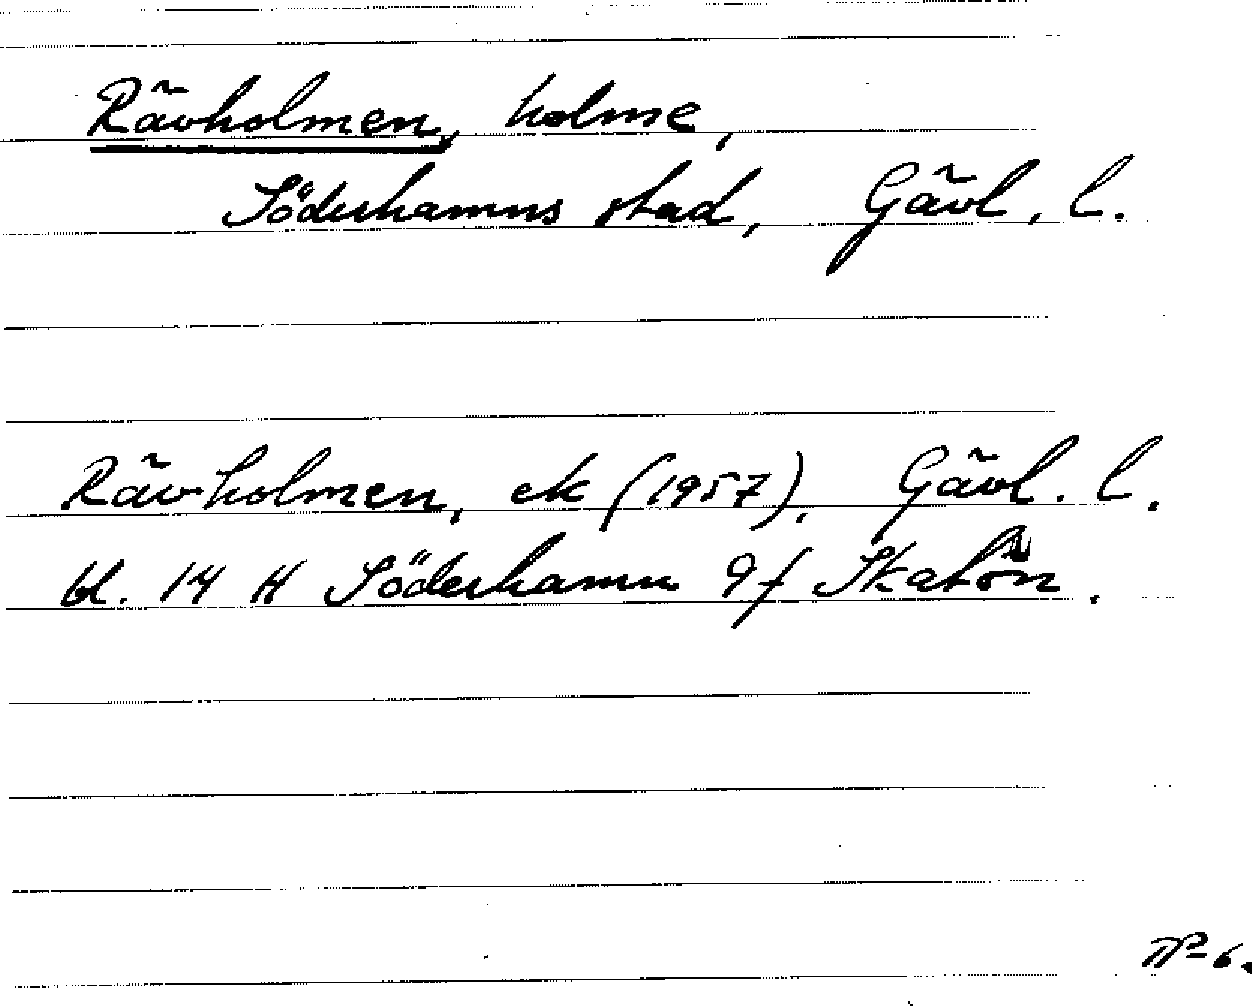 Rävholmen, holme,
Söderhamns stad, Gävl. l.
Rävholmen, ek (1957). Gävl. l.
bl. 14 H Söderhamn 9f Skatön.